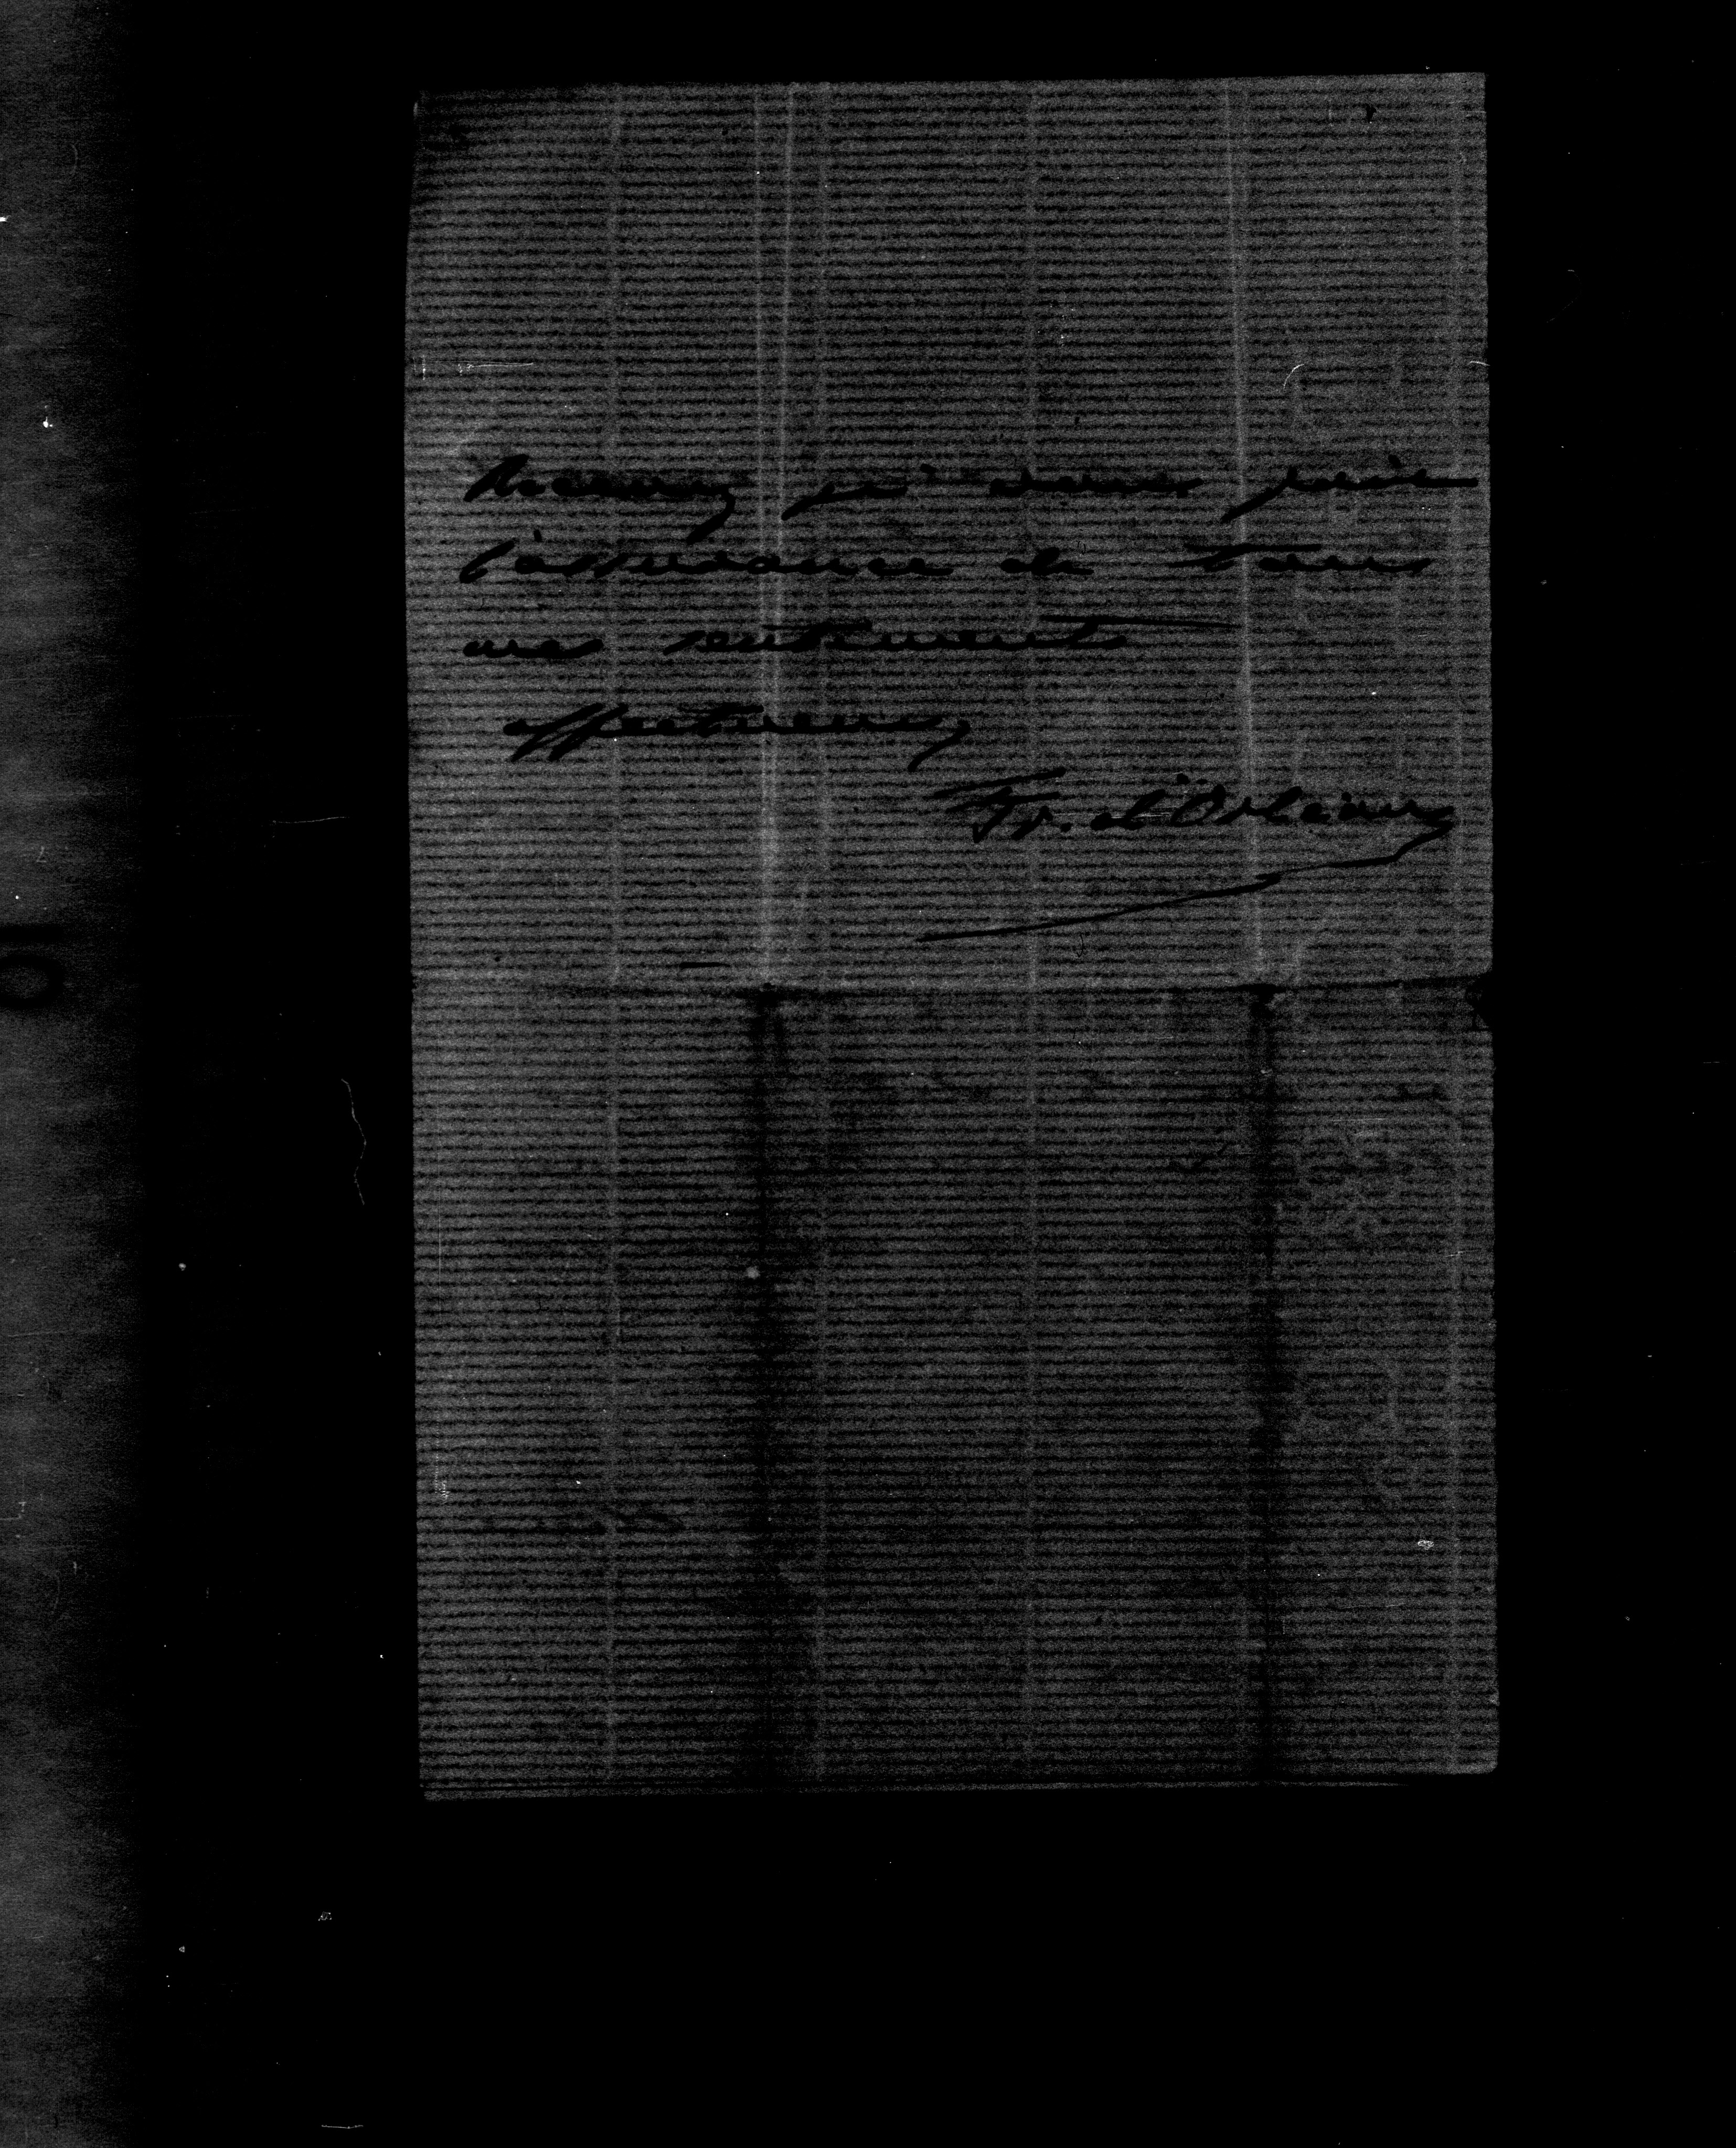 Recevez je vous prie
l'assurance de tous
mes sentiments
affectueux
Fr. d'Orléans